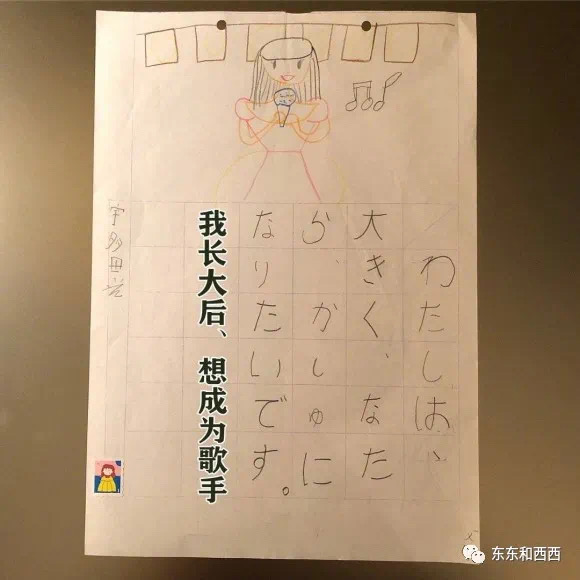 わたしは、
大きく、なた
ら、かしゅに
なりたいです。
我长大后、想成为歌手
宇多田光
东东和西西